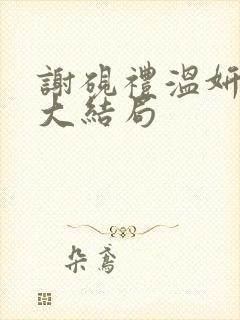 謝硯禮溫妍
大結局
朵鳶